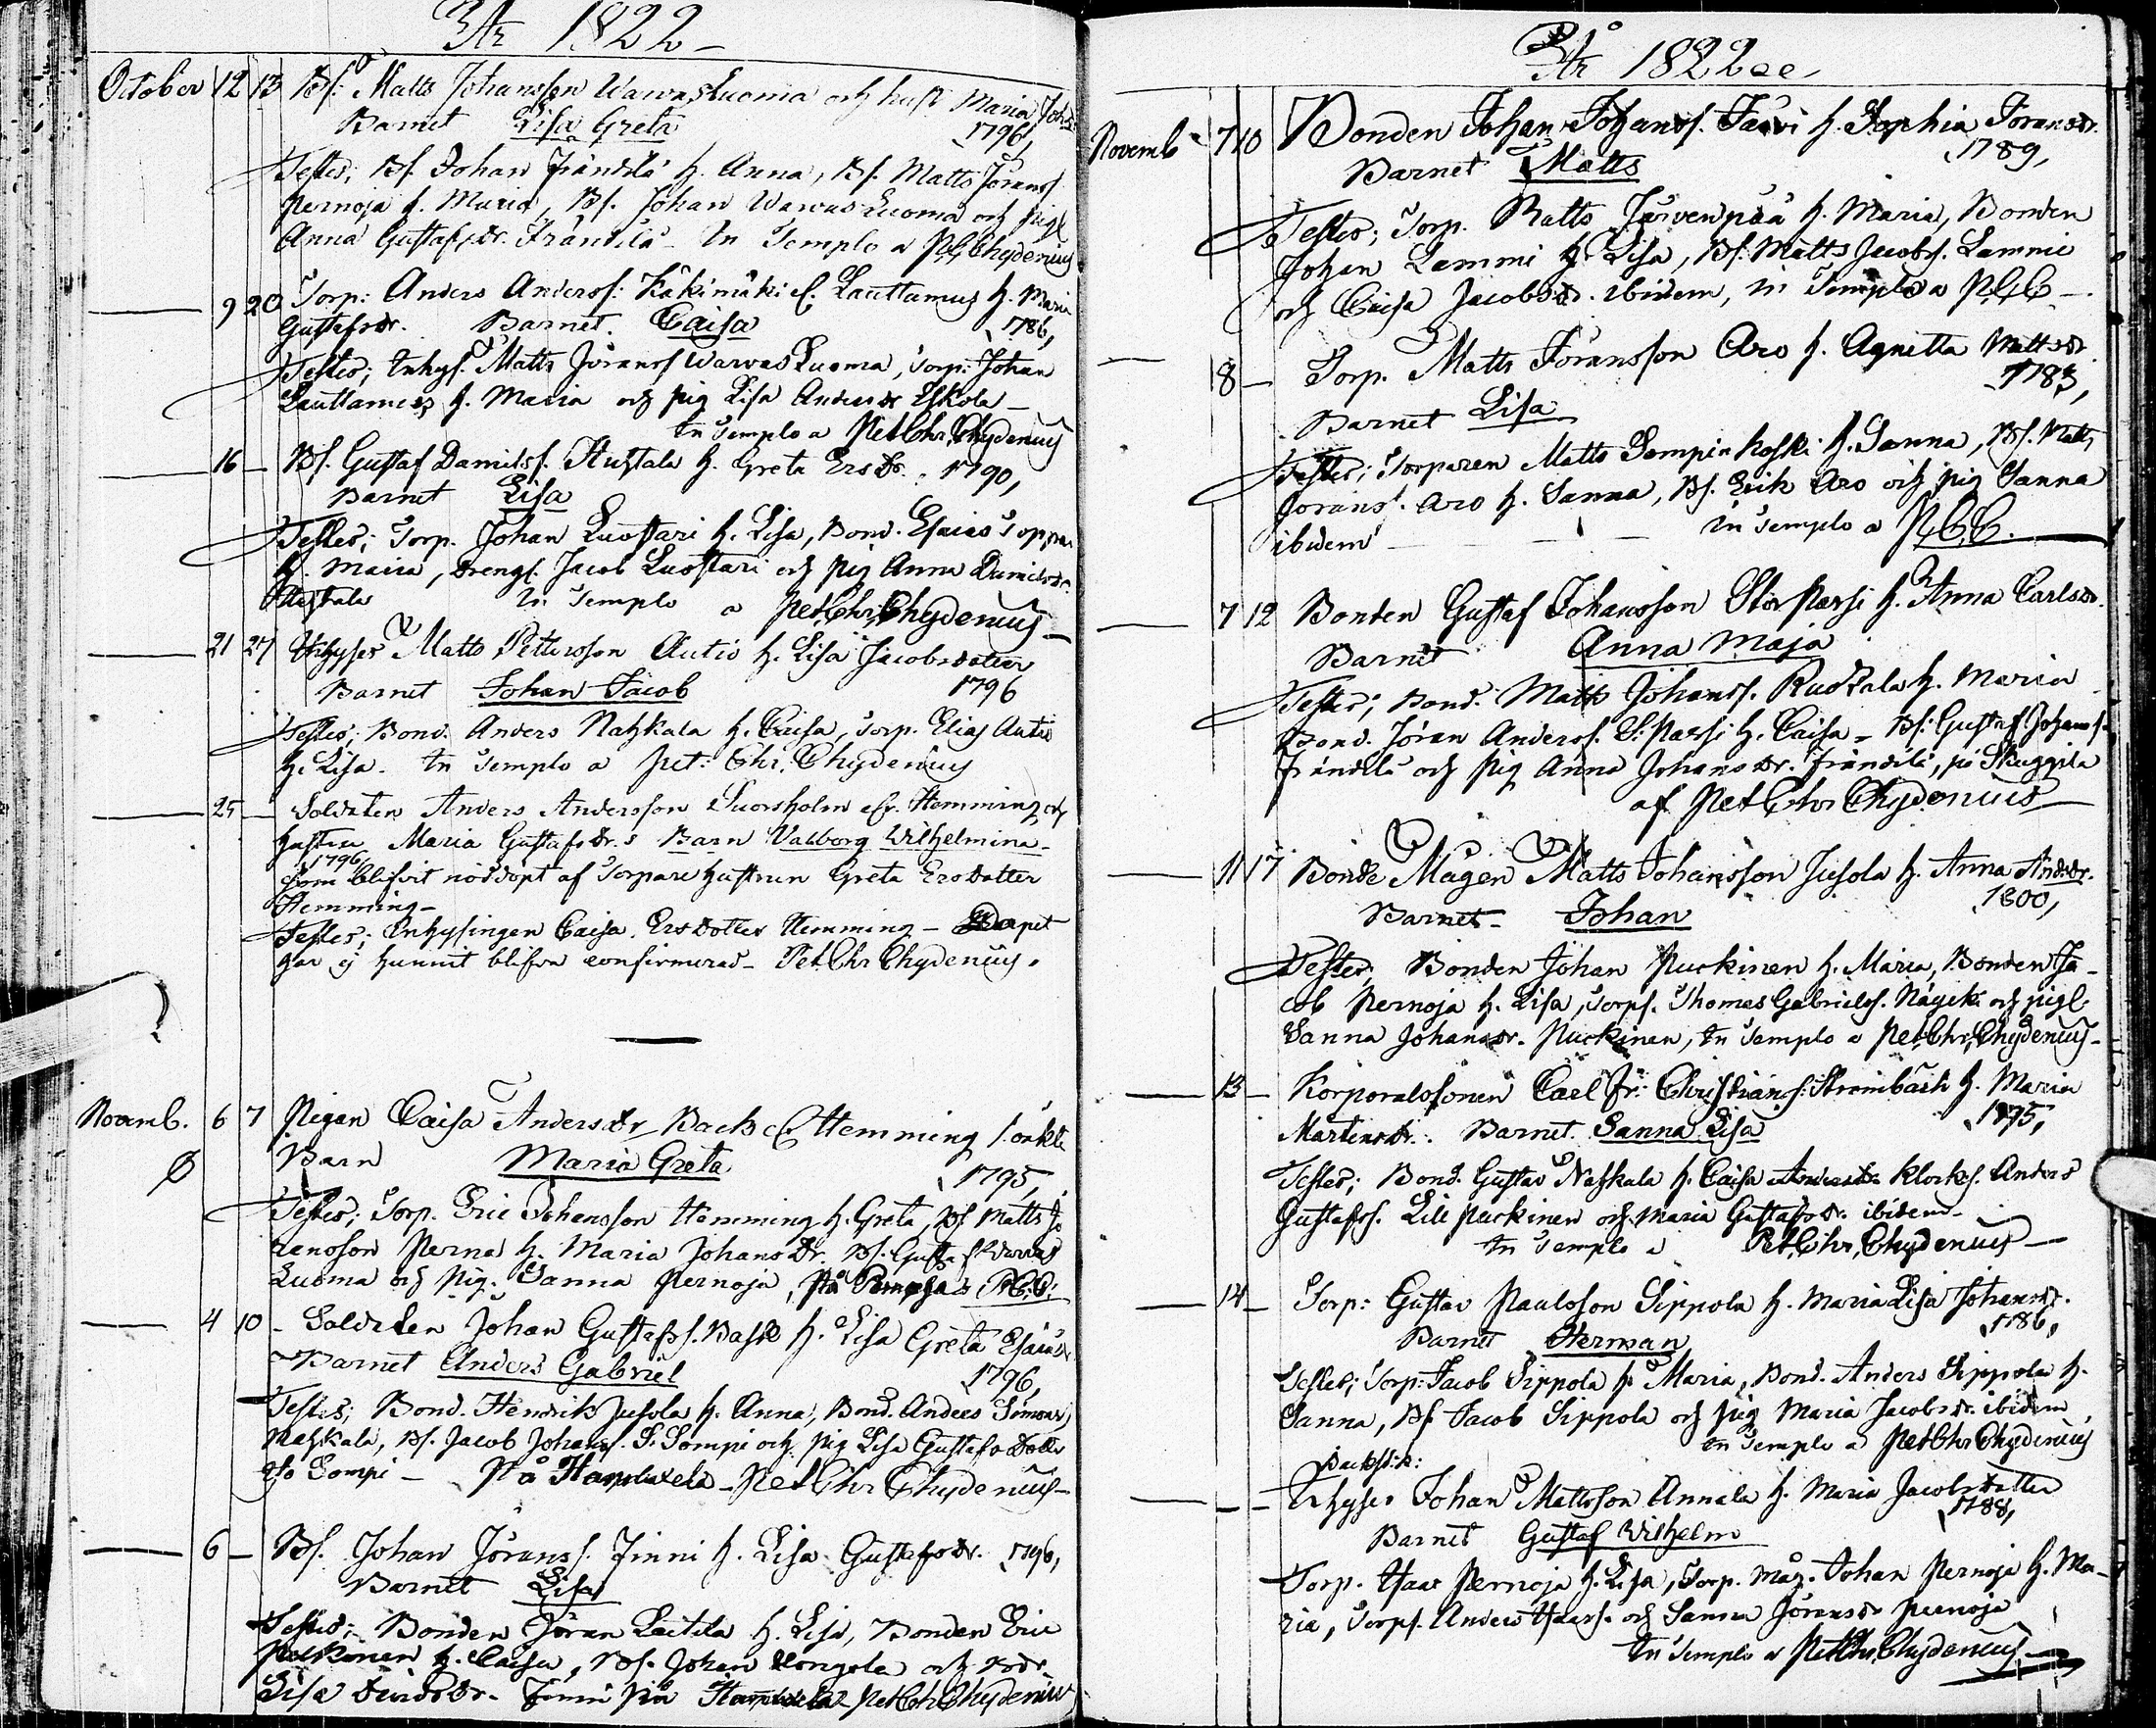 År 1822
October 12 13 Bs. Matts Johansson Warvasluoma och hust Maria Joh
Barnet Lisa Greta 1796,
Testes; Bs. Johan Frändilä h. Anna, Bs. Matts Jöranss.
Pernoja h. Maria, Bs. Johan Warvasluoma och pig.
Anna Gustafsdr. Frändilä - In Templo a P.C. Chydenius
9 20 Torp: Anders Anderss: Käkimäki el. Lauttamus h. Maria
Gustafsdr. Barnet. Caisa 1786,
Testes; Inhys. Matts Jöranss Warvasluoma, Torp: Johan
Lauttamus h. Maria och pig Lisa Andersdr Eskola -
In Templo a Pet Chr. Chydenius
16 - Bs. Gustaf Danielss. h. Greta Ersdr. 1790,
Barnet Lisa
Testes; Torp. Johan Luostari h. Lisa, Bond. Esaias
h. Maria, Drengs. Jacob Luostari och pig Anna Danielsdr.
In Templo a Pet. Chr. Chydenius
21 27 Inhyses Matts Pettersson Autio h. Lisa Jacobsdotter
Barnet Johan Jacob 1796
Testes; Bond. Anders Nahkala h. Caisa, Torp. Elias Autio
h. Lisa. In Templo a Pet: Chr. Chydenius
25 - Soldaten Anders Andersson Hemming och
hustru Maria Gustafsdr.s Barn Valborg Wilhelmina
1796
som blifvit nöddöpt af Torpare hustrun Greta Ersdotter
Hemming -
Testes; Inhysingen Caisa Ersdotter Hemming - Dopet
har ej hunnit blifva confirmerad - Pet Chr Chydenius.
Novemb. 6 7 Pigan Caisa Andersdr Back Hemming
Barn Maria Greta 1795,
Testes; Torp. Eric Johansson Hemming h. Greta, Bs Matts Jö
ransson Perna h. Maria Johansdr. Bs. Gustaf Warvas
Luoma och pig. Sanna Pernoja, P.C.C.
4 10 - Soldaten Johan Gustafss. Bask h. Lisa Greta Esaiasdr
Barnet Anders Gabriel 1796,
Testes; Bond. Hendrik Jusola h. Anna, Bond. Anders Simonss
Nahkala, Bs. Jacob Johanss. S. Sompi och pig Lisa Gustafsdotter
Sompi - På - Pet Chr Chydenius -
6 - Bs. Johan Jöranss. Finni h. Lisa Gustafsdr. 1796,
Barnet Lisa
Testes; Bonden Jöran Laitila h. Lisa, Bonden Eric
Pelkonen h. Caisa, Bs. Johan och
Lisa Finni på Pet Chr Chydenius
År 1822
Novemb 7 10 Bonden Johan Johanss. Järvi h. Sophia Jöransdr.
1789,
Barnet Matts
Testes; Torp. Matts Järvenpää h. Maria, Bonden
Johan Lammi h. Lisa, Bs. Matts Jacobs. Lammi
och Caisa Jacobsdr. ibidem, in Templo a P.C.C -
8 - Torp. Matts Jöransson Aro h. Agnetta Mattsdr
1783,
Barnet Lisa
Testes; Torparen Matts Sompinkoski h. Sanna, Bs. Matts
Jöranss. Aro h. Sanna, Bs. Erik Aro och pig Sanna
ibidem - - - in Templo a P.C.C.
7 12 Bonden Gustaf Johansson Stor Passi h. Anna Carlsdr.
Barnet Anna Maja
Testes; Bond. Matts Johanss. Ruokala h. Maria
Bond. Jöran Anderss. S. Passi h. Caisa - Bs: Gustaf Johanss.
Frändilä och pig Anna Johansdr. Frändilä, på
af Pet Chr Chydenius
11 17 Bonde Mågen Matts Johansson Jusola h. Anna Andersdr.
1800,
Barnet - Johan
Testes; Bonden Johan Puckinen h. Maria, Bonden Ja-
cob Pernoja h. Lisa, Torps. Thomas Gabrielss. och pig.
Sanna Johansdr. Puckinen, In Templo a Pet. Chr. Chydenius -
13 - Korporalssonen Carl Fr: Christians: Strömbäck h. Maria
Martensdr. Barnet. Sanna Lisa 1795,
Testes; Bond. Gustav Nahkala h. Caisa Klocks. Anders
Gustafss. Lill Puckinen och Maria Gustafsdr. ibidem -
In Templo a Pet. Chr. Chydenius -
14 - Torp: Gustav Paulsson Sippola h. Maria Lisa Johansdr.
1786,
Barnet Herman
Testes; Torp: Jacob Sippola h. Maria, Bond. Anders Sippola h.
Sanna, Bs. Jacob Sippola och pig Maria Jacobsdr. ibidem
In Templo a Pet Chr Chydenius
Inhyses Johan Mattsson Annala h. Maria Jacobsdotter
1788,
Barnet Gustaf Wilhelm
Torp. Isaac Pernoja h. Lisa, Torp. måg. Johan Pernoja h. Ma-
ria, Torps. Anders Isacss. och Sanna Jöransdr Pernoja
In Templo a Pet Chr. Chydenius -